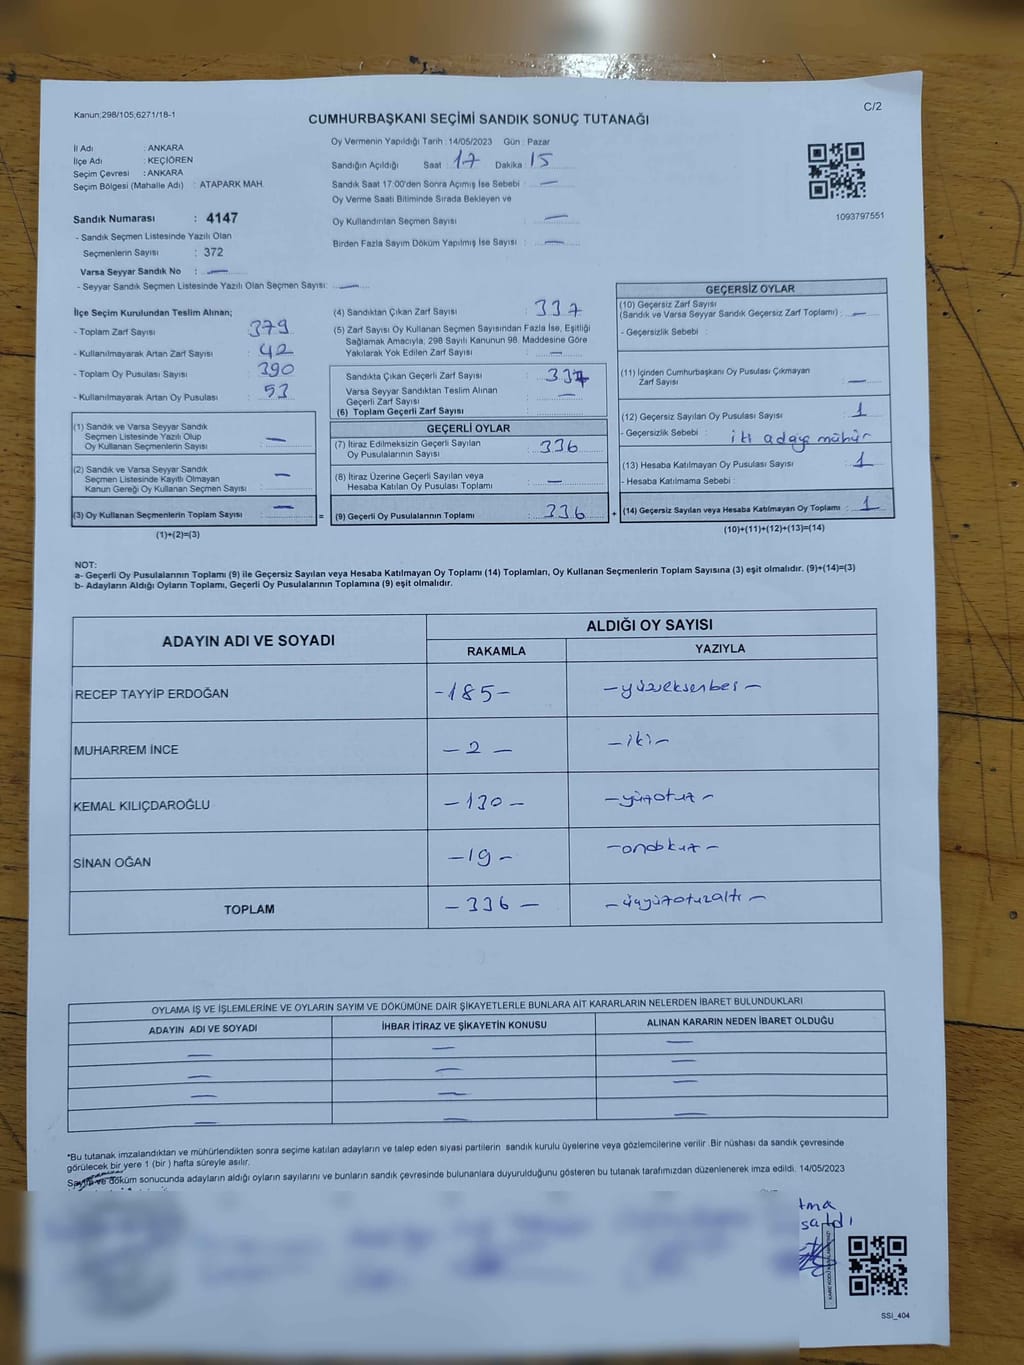 Kanun;298/105,6271/18-1
C/2
CUMHURBAŞKANI SEÇİMİ SANDIK SONUÇ TUTANAĞI
İl Adı : ANKARA
İlçe Adı : KEÇİÖREN
Seçim Çevresi : ANKARA
Seçim Bölgesi (Mahalle Adı) : ATAPARK MAH.
Oy Vermenin Yapıldığı Tarih : 14/05/2023 Gün : Pazar
Sandığın Açıldığı Saat : 17 Dakika : 15
Sandık Saat 17:00'den Sonra Açımış İse Sebebi : —
Oy Verme Saati Bitiminde Sırada Bekleyen ve
Oy Kullandırılan Seçmen Sayısı : —
Birden Fazla Sayım Döküm Yapılmış İse Sayısı : —
1093797551
Sandık Numarası : 4147
- Sandık Seçmen Listesinde Yazılı Olan
Seçmenlerin Sayısı : 372
Varsa Seyyar Sandık No : —
- Seyyar Sandık Seçmen Listesinde Yazılı Olan Seçmen Sayısı: —
İlçe Seçim Kurulundan Teslim Alınan;
- Toplam Zarf Sayısı : 379
- Kullanılmayarak Artan Zarf Sayısı : 42
- Toplam Oy Pusulası Sayısı : 390
- Kullanılmayarak Artan Oy Pusulası : 53
(1) Sandık ve Varsa Seyyar Sandık
Seçmen Listesinde Yazılı Olup
Oy Kullanan Seçmenlerin Sayısı : —
(2) Sandık ve Varsa Seyyar Sandık
Seçmen Listesinde Kayıtlı Olmayan
Kanun Gereği Oy Kullanan Seçmen Sayısı : —
(3) Oy Kullanan Seçmenlerin Toplam Sayısı : — =
(1)+(2)=(3)
(4) Sandıktan Çıkan Zarf Sayısı : 337
(5) Zarf Sayısı Oy Kullanan Seçmen Sayısından Fazla İse, Eşitliği
Sağlamak Amacıyla, 298 Sayılı Kanunun 98. Maddesine Göre
Yakılarak Yok Edilen Zarf Sayısı : —
Sandıkta Çıkan Geçerli Zarf Sayısı : 337
Varsa Seyyar Sandıktan Teslim Alınan
Geçerli Zarf Sayısı : —
(6) Toplam Geçerli Zarf Sayısı :
GEÇERLİ OYLAR
(7) İtiraz Edilmeksizin Geçerli Sayılan
Oy Pusulalarının Sayısı : 336
(8) İtiraz Üzerine Geçerli Sayılan veya
Hesaba Katılan Oy Pusulası Toplamı : —
(9) Geçerli Oy Pusulalarının Toplamı : 336 +
GEÇERSİZ OYLAR
(10) Geçersiz Zarf Sayısı
(Sandık ve Varsa Seyyar Sandık Geçersiz Zarf Toplamı) : —
- Geçersizlik Sebebi :
(11) İçinden Cumhurbaşkanı Oy Pusulası Çıkmayan
Zarf Sayısı : —
(12) Geçersiz Sayılan Oy Pusulası Sayısı : 1
- Geçersizlik Sebebi : iki adaya mühür
(13) Hesaba Katılmayan Oy Pusulası Sayısı : 1
- Hesaba Katılmama Sebebi :
(14) Geçersiz Sayılan veya Hesaba Katılmayan Oy Toplamı : 1
(10)+(11)+(12)+(13)=(14)
NOT:
a- Geçerli Oy Pusulalarının Toplamı (9) ile Geçersiz Sayılan veya Hesaba Katılmayan Oy Toplamı (14) Toplamları, Oy Kullanan Seçmenlerin Toplam Sayısına (3) eşit olmalıdır. (9)+(14)=(3)
b- Adayların Aldığı Oyların Toplamı, Geçerli Oy Pusulalarının Toplamına (9) eşit olmalıdır.
ADAYIN ADI VE SOYADI
ALDIĞI OY SAYISI
RAKAMLA YAZIYLA
RECEP TAYYİP ERDOĞAN -185- -yüzseksenbeş-
MUHARREM İNCE -2- -iki-
KEMAL KILIÇDAROĞLU -130- -yüzotuz-
SİNAN OĞAN -19- -ondokuz-
TOPLAM -336- -üçyüzotuzaltı-
OYLAMA İŞ VE İŞLEMLERİNE VE OYLARIN SAYIM VE DÖKÜMÜNE DAİR ŞİKAYETLERLE BUNLARA AİT KARARLARIN NELERDEN İBARET BULUNDUKLARI
ADAYIN ADI VE SOYADI İHBAR İTİRAZ VE ŞİKAYETİN KONUSU ALINAN KARARIN NEDEN İBARET OLDUĞU
— — —
— — —
— — —
— — —
*Bu tutanak imzalandıktan ve mühürlendikten sonra seçime katılan adayların ve talep eden siyasi partilerin sandık kurulu üyelerine veya gözlemcilerine verilir .Bir nüshası da sandık çevresinde
görülecek bir yere 1 (bir ) hafta süreyle asılır.
Sayım ve döküm sonucunda adayların aldığı oyların sayılarını ve bunların sandık çevresinde bulunanlara duyurulduğunu gösteren bu tutanak tarafımızdan düzenlenerek imza edildi. 14/05/2023
SSİ_404